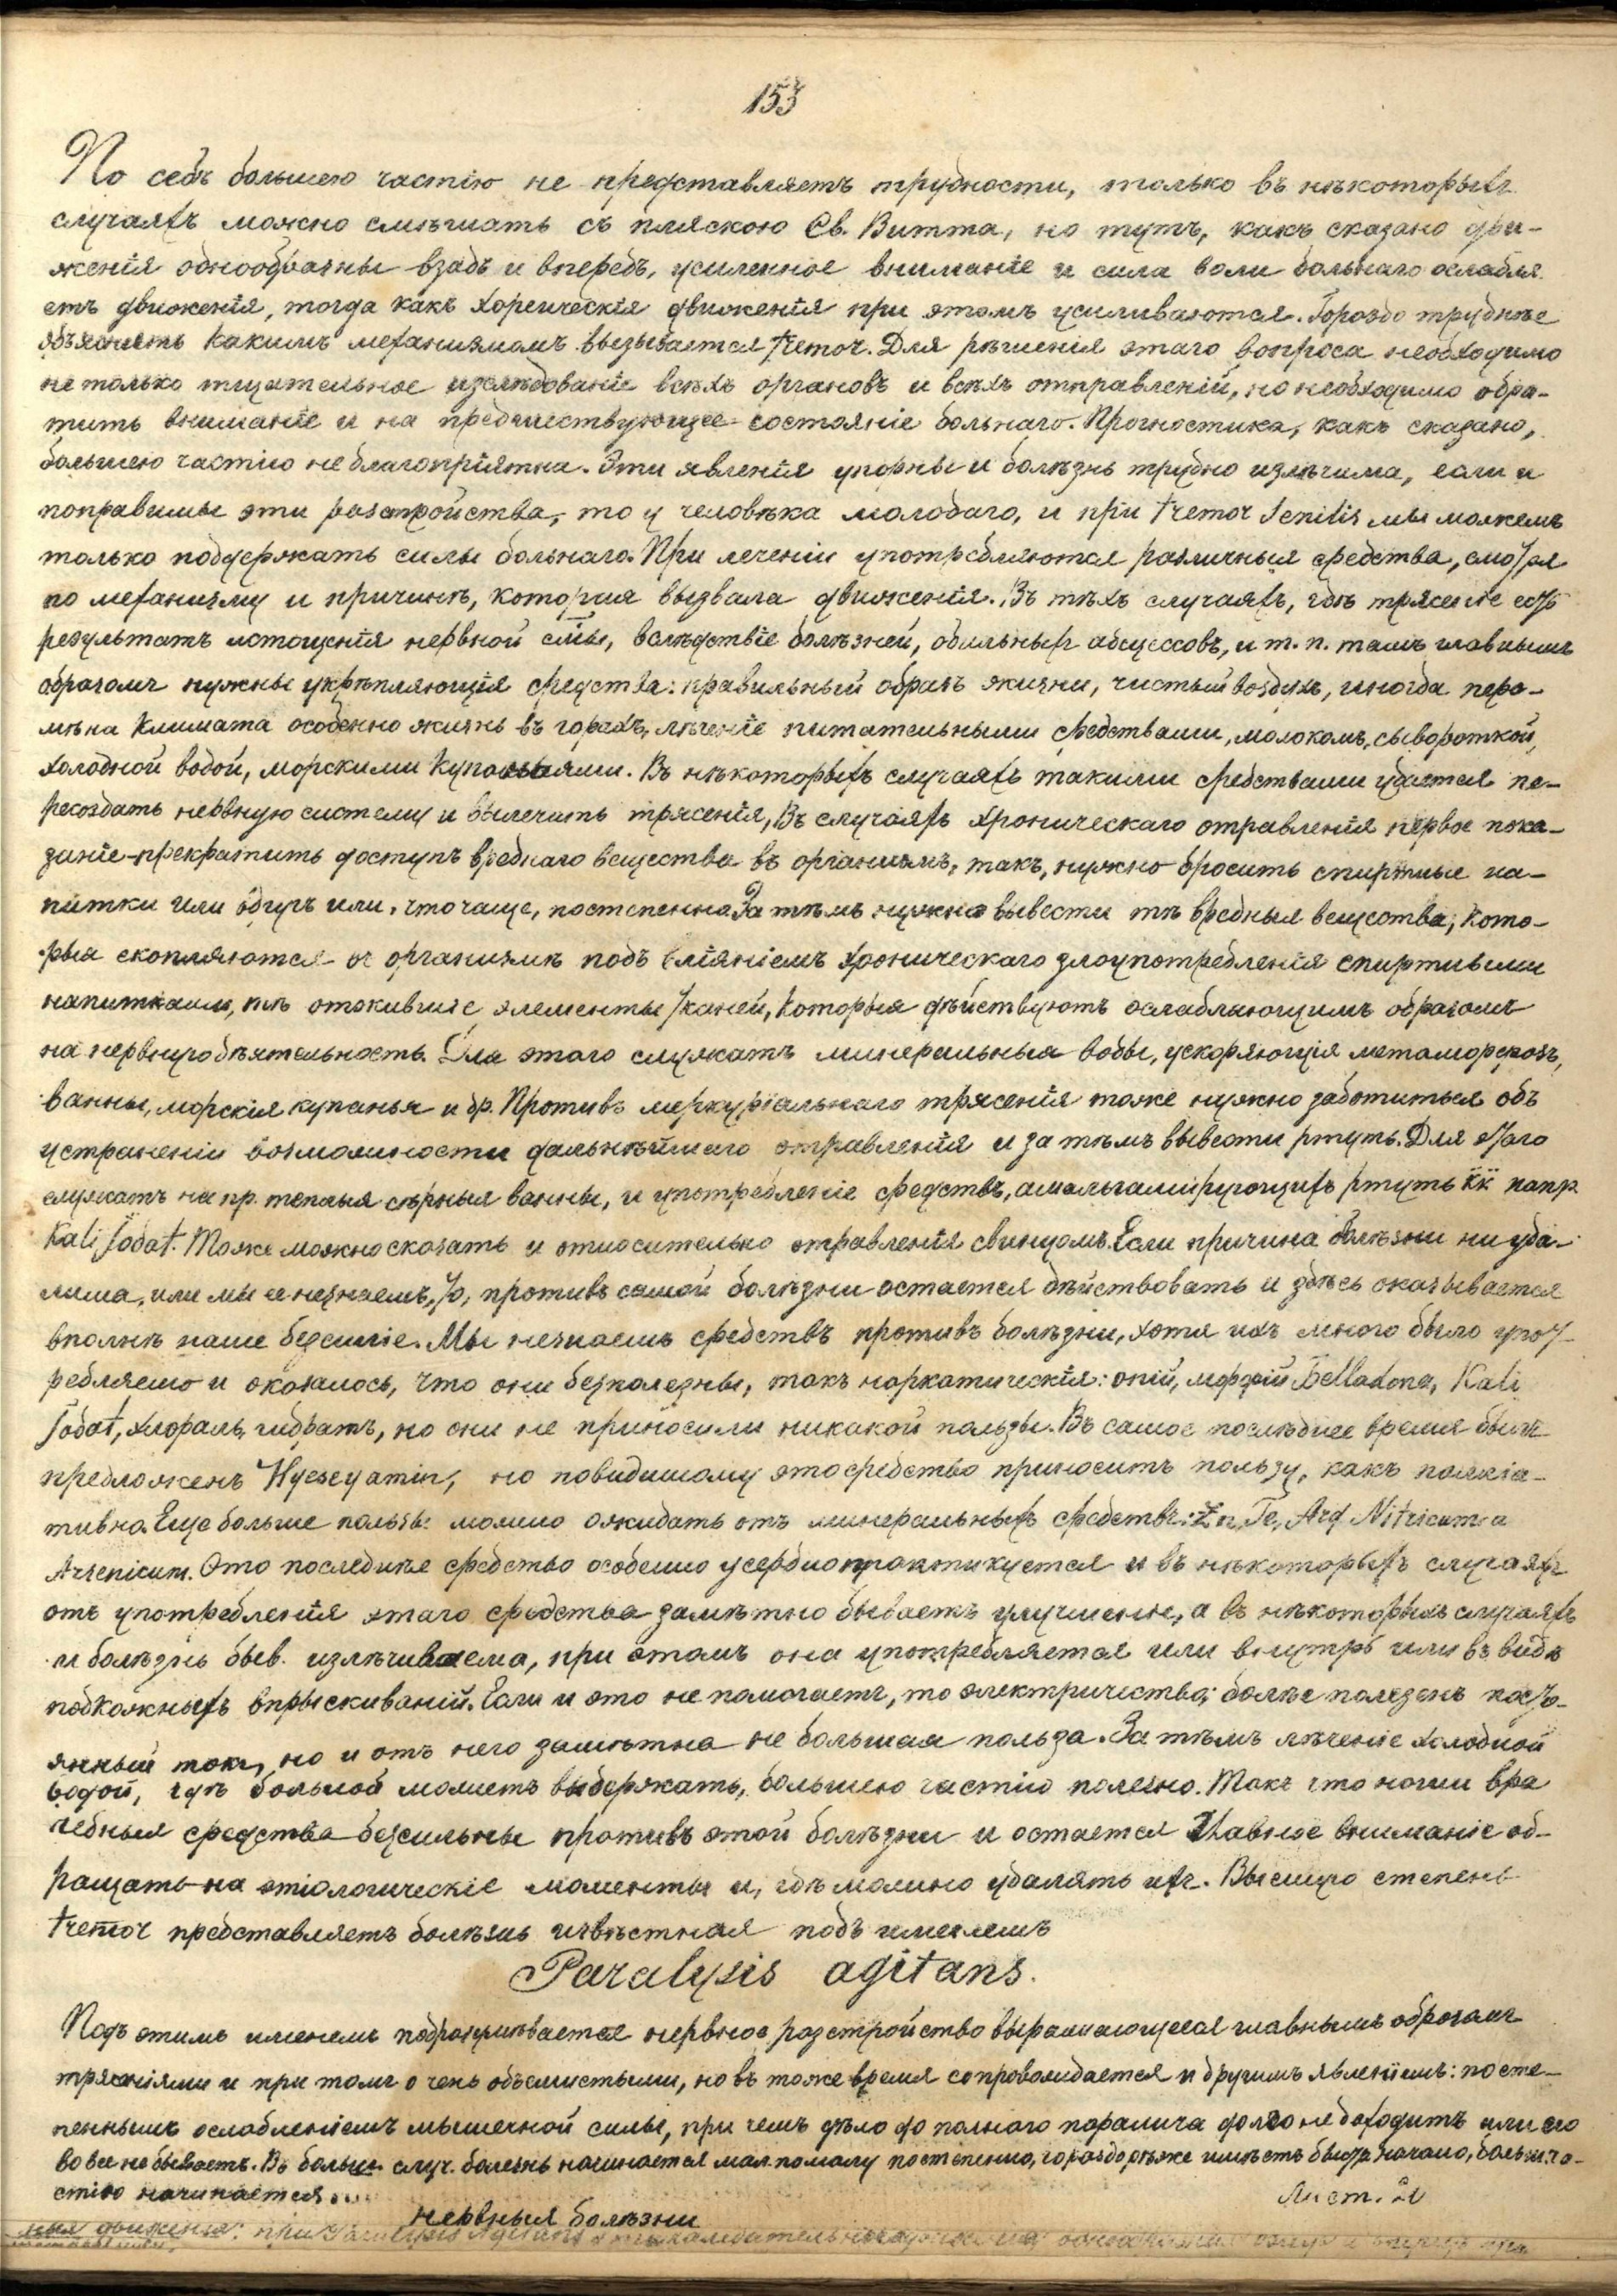 153
По себѣ большею частію не представляетъ трудности, только въ нѣкоторыхъ
случаяхъ можно смѣшать съ пляскою Св. Витта, но тутъ, какъ сказано дви-
женія однообразны взадъ и впередъ, усиленное вниманіе и сила воли больнаго ослабля
етъ движенія, тогда какъ хореическія движенія при этомъ усиливаются. Гораздо труднѣе
объяснить какимъ механизмомъ вызывается tremor. Для рѣшенія этаго вопроса необходимо
не только тщательное изслѣдованіе всѣхъ органовъ и всѣхъ отправленій, но необходимо обра-
тить вниманіе и на предшествующее состояніе больнаго. Прогностика, какъ сказано,
большею частію не благопріятна. Эти явленія упорны и болѣзнь трудно излѣчима, если и
поправимы эти разстройства, то у человѣка молодаго, и при tremor senilis мы можемъ
только поддержать силы больнаго. При леченіи употребляются различныя средства, смотря
по механизму и причинѣ, которая вызвала движенія. Въ тѣхъ случаяхъ, гдѣ трясеніе есть
результатъ истощенія нервной силы, вслѣдствіе болѣзней, обильныхъ абсцессовъ, и т. п. тамъ главнымъ
образомъ нужны укрѣпляющія средства: правильный образъ жизни, чистый воздухъ, иногда пере-
мѣна климата особенно жизнь въ горахъ, лѣченіе питательными средствами, молокомъ, сывороткой,
холодной водой, морскими купаньями. Въ нѣкоторыхъ случаяхъ такими средствами удается пе-
ресоздать нервную систему и вылечить трясенія, Въ случаяхъ хроническаго отравленія первое пока-
заніе-прекратить доступъ вреднаго вещества въ организмъ, такъ, нужно бросить спиртные на-
питки или вдругъ или, что чаще, постепенно. За тѣмъ нужно вывести тѣ вредныя вещества, кото-
рыя скопляются въ организмѣ подъ вліяніемъ хроническаго злоупотребленія спиртными
напитками, тѣ отжившіе элементы тканей, которыя дѣйствуютъ ослабляющимъ образомъ
на нервную дѣятельность. Для этого служатъ минеральныя воды, ускоряющія метаморфозъ,
ванны, морскія купанья и др. Противъ меркуріальнаго трясенія тоже нужно заботиться объ
устраненіи возможности дальнѣйшаго отравленія и за тѣмъ вывести ртуть. Для этаго
служатъ на пр. теплыя сѣрныя ванны, и употребленіе средствъ, амальгамирующихъ ртуть кк напр.
Kali Jodat. Тоже можно сказать и относительно отравленія свинцомъ. Если причина болѣзни ни уда-
лима, или мы ее не знаемъ, то, противъ самой болѣзни остается дѣйствовать и здѣсь оказывается
вполнѣ наше безсиліе. Мы не знаемъ средствъ противъ болѣзни, хотя ихъ много было упот-
ребляемо и оказалось, что они безполезны, такъ наркатическія: опій, морфій Belladona, Kali
Jodat, хлоралъ гидратъ, но они не приносили никакой пользы. Въ самое послѣднее время былъ
предложенъ Hyoscyamin, но повидимому это средство приноситъ пользу, какъ палліа-
тивно. Еще больше пользы можно ожидать отъ минеральныхъ средствъ: Zn, Fe, Arg Nitricum и
Arsenicum. Это послѣднѣе средство особенно усердно практикуется и въ нѣкоторыхъ случаяхъ
отъ употребленія этаго средства замѣтно бываетъ улучшеніе, а въ нѣкоторыхъ случаяхъ
и болѣзнь быв. излѣчиваема, при этомъ она употребляется или внутрь или въ видѣ
подкожныхъ впрыскиваній. Если и это не помогаетъ, то электричество; болѣе полезенъ посто-
янный токъ, но и отъ него замѣтна не большая польза. За тѣмъ лѣченіе холодной
водой, гдѣ больной можетъ выдержать, большею частію полезно. Такъ что наши вра
чебныя средства безсильны противъ этой болѣзни и остается главное вниманіе об-
ращать на этіологическіе моменты и, гдѣ можно удалять ихъ. Высшую степень
tremor представляетъ болѣзнь извѣстная подъ именемъ
Paralysis agitans.
Подъ этимъ именемъ подразумѣвается нервное разстройство выражающееся главнымъ образомъ
трясеніями и при томъ очень объемистыми, но въ тоже время сопровождается и другимъ явленіемъ: посте-
пеннымъ ослабленіемъ мышечной силы, при чемъ дѣло до полного паралича долго не доходитъ или его
вовсе не бываетъ. Въ больш. случ. болезнь начинается мал. помалу постепенно, гораздо рѣже имѣетъ быстр. начало, больш. ча-
стію начинается
Лист. 21
Нервныя болѣзни